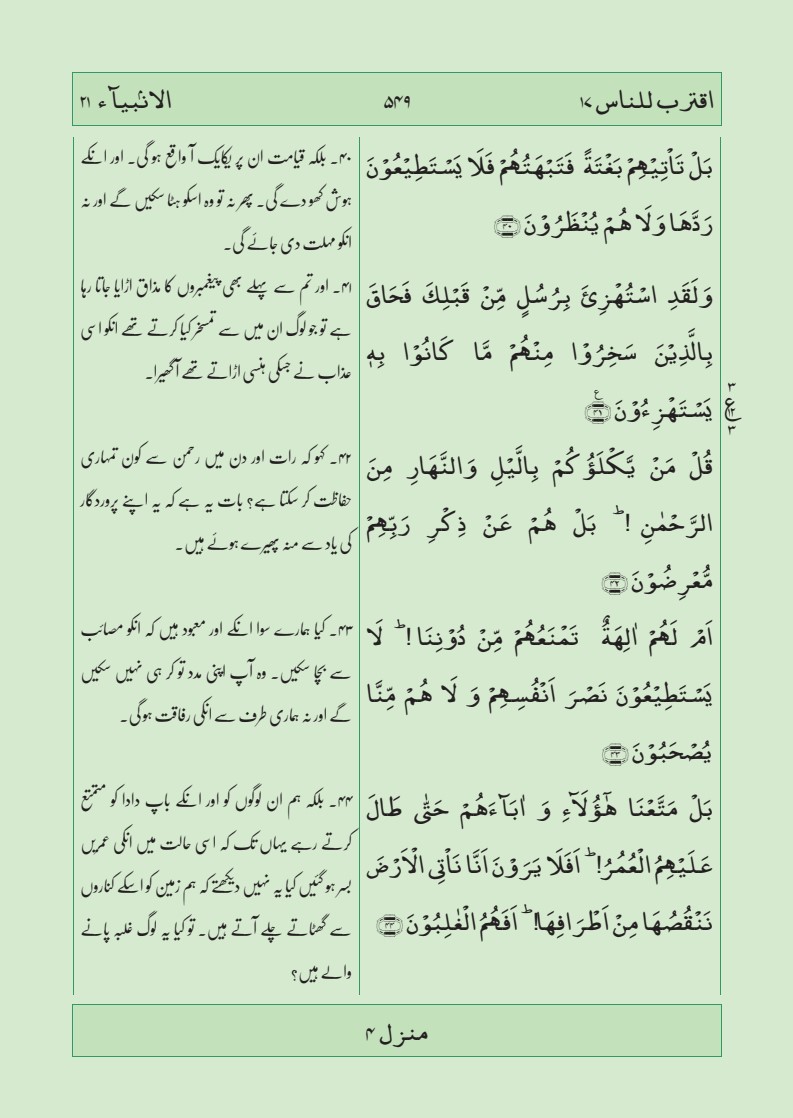 اقترب للناس ۱۷
۵۴۹
الانبیآء ۲۱
بَلْ تَاْتِیْهِمْ بَغْتَةً فَتَبْهَتُهُمْ فَلَا یَسْتَطِیْعُوْنَ
رَدَّهَا وَ لَا هُمْ یُنْظَرُوْنَ ﴿۴۰﴾
وَ لَقَدِ اسْتُهْزِئَ بِرُسُلٍ مِّنْ قَبْلِكَ فَحَاقَ
بِالَّذِیْنَ سَخِرُوْا مِنْهُمْ مَّا كَانُوْا بِهٖ
یَسْتَهْزِءُوْنَ ﴿۴۱﴾ ع
۳
ع ۱۲
۳
قُلْ مَنْ یَّكْلَؤُكُمْ بِالَّیْلِ وَ النَّهَارِ مِنَ
الرَّحْمٰنِ ! ؕ بَلْ هُمْ عَنْ ذِكْرِ رَبِّهِمْ
مُّعْرِضُوْنَ ﴿۴۲﴾
اَمْ لَهُمْ اٰلِهَةٌ تَمْنَعُهُمْ مِّنْ دُوْنِنَا ! ؕ لَا
یَسْتَطِیْعُوْنَ نَصْرَ اَنْفُسِهِمْ وَ لَا هُمْ مِّنَّا
یُصْحَبُوْنَ ﴿۴۳﴾
بَلْ مَتَّعْنَا هٰۤؤُلَآءِ وَ اٰبَآءَهُمْ حَتّٰی طَالَ
عَلَیْهِمُ الْعُمُرُ ! ؕ اَفَلَا یَرَوْنَ اَنَّا نَاْتِی الْاَرْضَ
نَنْقُصُهَا مِنْ اَطْرَافِهَا ! ؕ اَفَهُمُ الْغٰلِبُوْنَ ﴿۴۴﴾
۴۰۔ بلکہ قیامت ان پر یکایک آ واقع ہو گی۔ اور انکے
ہوش کھو دے گی۔ پھر نہ تو وہ اسکو ہٹا سکیں گے اور نہ
انکو مہلت دی جائے گی۔
۴۱۔ اور تم سے پہلے بھی پیغمبروں کا مذاق اڑایا جاتا رہا
ہے تو جو لوگ ان میں سے تمسخر کیا کرتے تھے انکو اسی
عذاب نے جسکی ہنسی اڑاتے تھے آ گھیرا۔
۴۲۔ کہو کہ رات اور دن میں رحمن سے کون تمہاری
حفاظت کر سکتا ہے؟ بات یہ ہے کہ یہ اپنے پروردگار
کی یاد سے منہ پھیرے ہوئے ہیں۔
۴۳۔ کیا ہمارے سوا انکے اور معبود ہیں کہ انکو مصائب
سے بچا سکیں۔ وہ آپ اپنی مدد تو کر ہی نہیں سکیں
گے اور نہ ہماری طرف سے انکی رفاقت ہو گی۔
۴۴۔ بلکہ ہم ان لوگوں کو اور انکے باپ دادا کو متمتع
کرتے رہے یہاں تک کہ اسی حالت میں انکی عمریں
بسر ہو گئیں کیا یہ نہیں دیکھتے کہ ہم زمین کو اسکے کناروں
سے گھٹاتے چلے آتے ہیں۔ تو کیا یہ لوگ غلبہ پانے
والے ہیں؟
منزل ۴